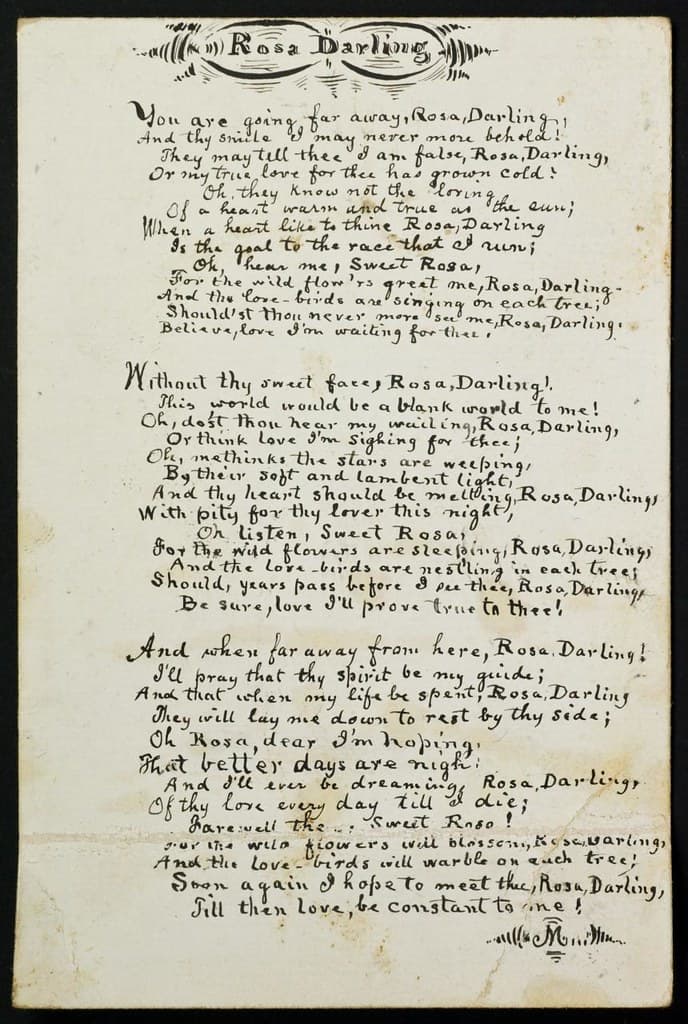 Rosa Darling
You are going far away, Rosa, Darling,
And thy smile I may never more behold!
They may tell thee I am false, Rosa, Darling,
Or my true love for thee has grown cold?
Oh, they know not the loving
Of a heart warm and true as the sun;
When a heart like to thine Rosa, Darling
Is the goal to the race that I run;
Oh, hear me, Sweet Rosa,
For the wild flow'rs greet me, Rosa, Darling-
And the love-birds are singing on each tree;
Should'st thou never more see me, Rosa, Darling.
Believe, love I'm waiting for thee.
Without thy sweet face, Rosa, Darling!
This world would be a blank world to me!
Oh, dost thou hear my wailing, Rosa, Darling,
Or think love I'm sighing for thee;
Oh, methinks the stars are weeping,
By their soft and lambent light,
And thy heart should be melting, Rosa, Darling,
With pity for thy lover this night,
Oh listen, Sweet Rosa,
For the wild flowers are sleeping, Rosa, Darling,
And the love-birds are nestling in each tree;
Should, years pass before I see thee, Rosa, Darling,
Be sure, love I'll prove true to thee!
And when far away from here, Rosa, Darling!
I'll pray that thy spirit be my guide;
And that when my life be spent, Rosa, Darling
They will lay me down to rest by thy side;
Oh Rosa, dear I'm hoping,
That better days are nigh.
And I'll ever be dreaming, Rosa, Darling,
Of thy love every day till I die;
Farewell Sweet Rosa!
For the wild flowers will blossom, Rosa, Darling,
And the love-birds will warble on each tree;
Soon again I hope to meet thee, Rosa, Darling,
Till then love, be constant to me!
M